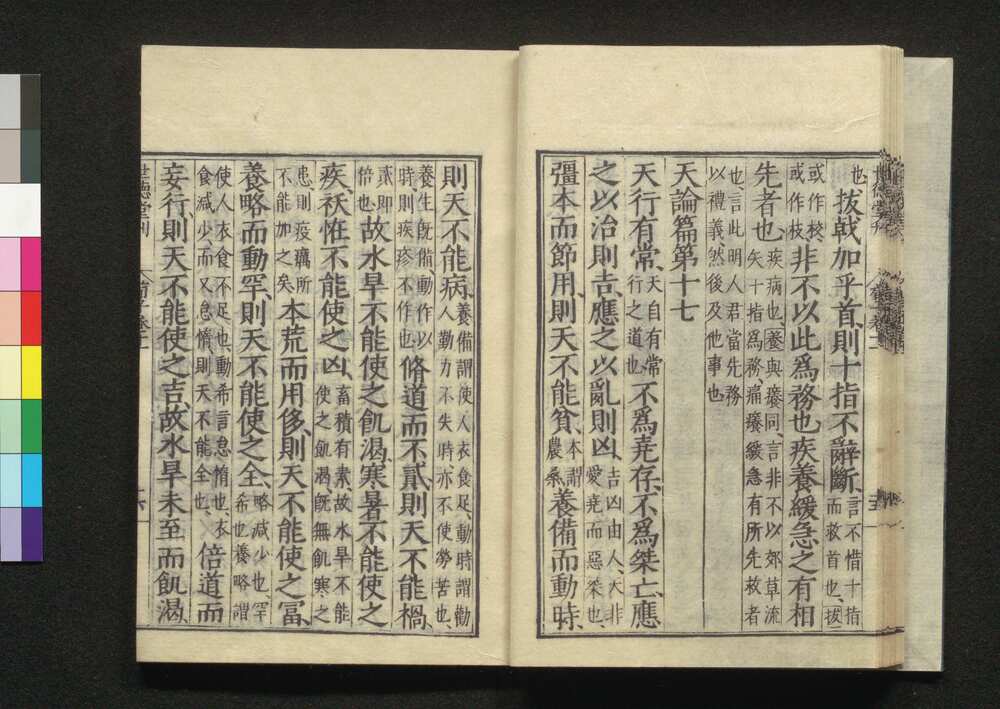 也拔戟加乎首、則十指不辭斷、言不惜十指而救首也、拔
或作校、或作枝非不以此爲務也疾養緩急之有相
先者也、疾病也、養與癢同、言非不以郊草流矢十指爲務、痛癢緩急有所先救者
也言此明人君當先務以禮義、然後及他事也
天論篇第十七
天行有常、天自有常行之道也不爲堯存、不爲桀亡、應
之以治則吉、應之以亂則凶、吉凶由人、天非愛堯而惡桀也、
彊本而節用、則天不能貧、本謂農桑養備而動時、
則天不能病、養備謂使人衣食足、動時謂勸人勤力不失時、亦不使勞苦也、
養生旣備、動作以時、則疾疹不作也脩道而不貳、則天不能禍、
貳卽倍也故水旱不能使之飢渴、寒暑不能使之
疾、祅怪不能使之凶、畜積有素故水旱不能使之飢渴旣無飢寒之
患、則疫癘所不能加之矣、本荒而用侈、則天不能使之富、
養略而動罕、則天不能使之全、略減少也、罕希也養略謂
使人衣食不足也動希言怠惰也、衣食減少、而又怠惰、則天不能全也、倍道而
妄行、則天不能使之吉、故水旱未至而飢渴、
世德堂刊